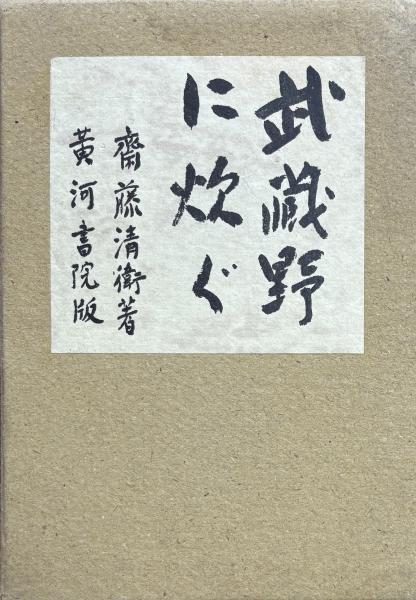 武蔵野
に炊ぐ
齋藤清衞著
黃河書院版